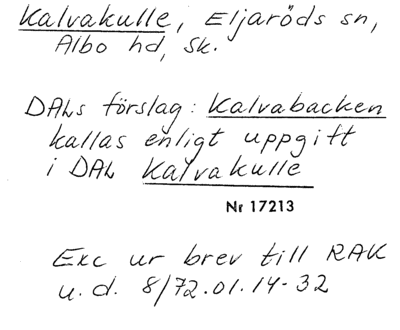 Kalvakulle, Eljaröds sn,
Albo hd, Sk.
DALs förslag: Kalvabacken
kallas enligt uppgift
i DAL Kalvakulle
Nr 17213
Exc ur brev till RAK
u.d. 8/72.01.14-32